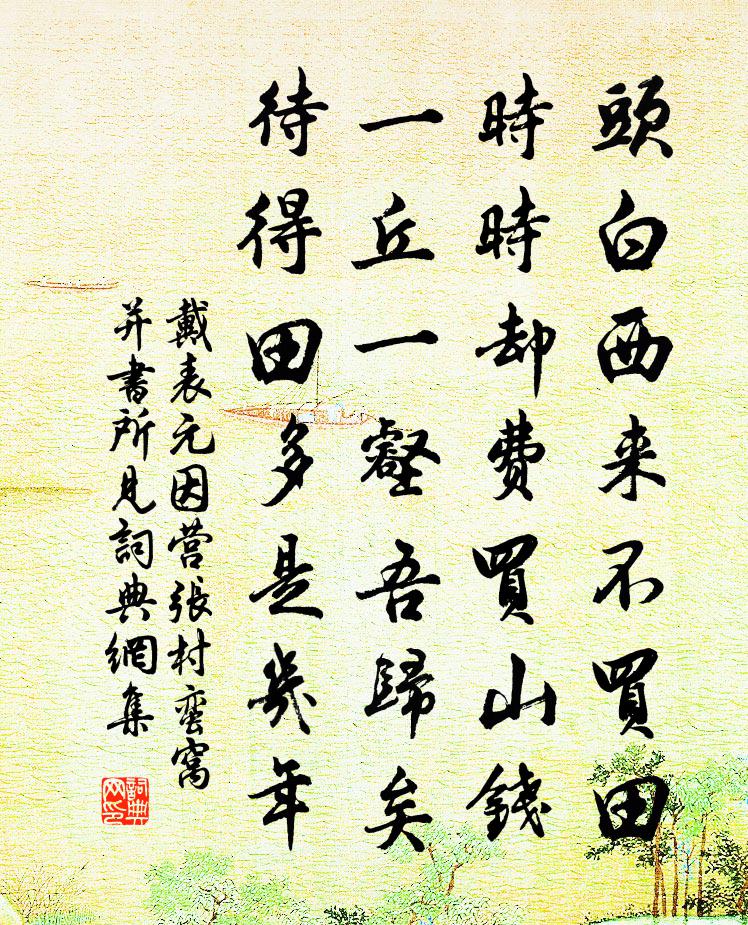 頭白西来不買田
時時却費買山錢
一丘一壑吾歸矣
待得田多是幾年
戴表元因营張村蛮窩
并書所見詞典網集
詞典网印